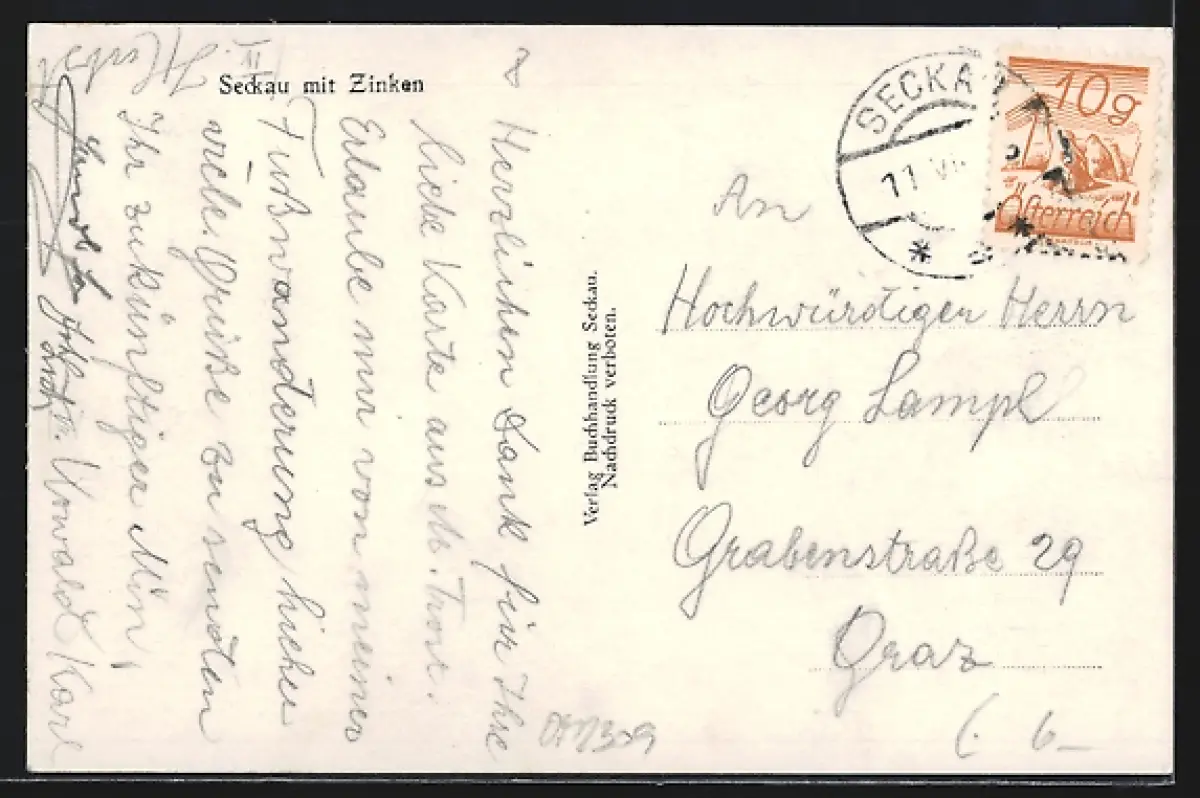 Seckau mit Zinken
Herzlichen Dank für Ihre
liebe Karte aus M. Trost.
Erlaube mir von meiner
Fußwanderung hieher
viele Grüße zu senden
Ihr zukünftiger
Karl
Verlag Buchhandlung Seckau.
Nachdruck verboten.
SECKAU
11 VII
10g
Österreich
An
Hochwürdigen Herrn
Georg Lampl
Grabenstraße 29
Graz
6–